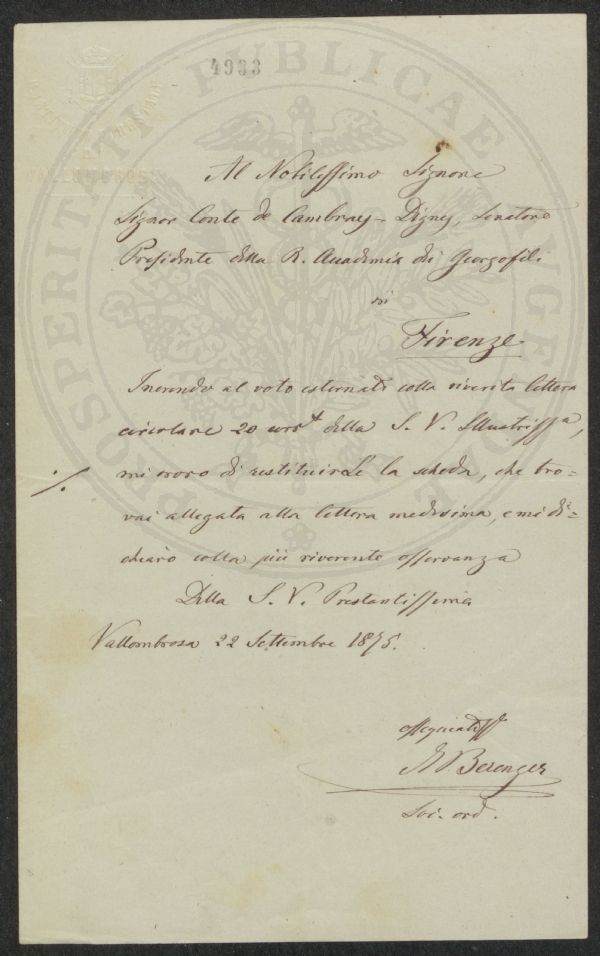 4933
Al Nobilissimo Signore
Signor Conte de Cambray-Digny, Senatore
Presidente della R. Accademia dei Georgofili
in
Firenze
Inerendo al voto esternati colla riverita lettera
circolare 20 corrt della S. V. Illustrissa,
mi onoro di restituirLe la scheda, che tro-
vai allegata alla lettera medesima, e mi di-
chiaro colla più riverente osservanza
Della S. V. Prestantissima
Vallombrosa 22 Settembre 1875.
ossequiatiss
Berenger
Soc. ord.
PROSPERITATI PUBLICAE AUGENDAE